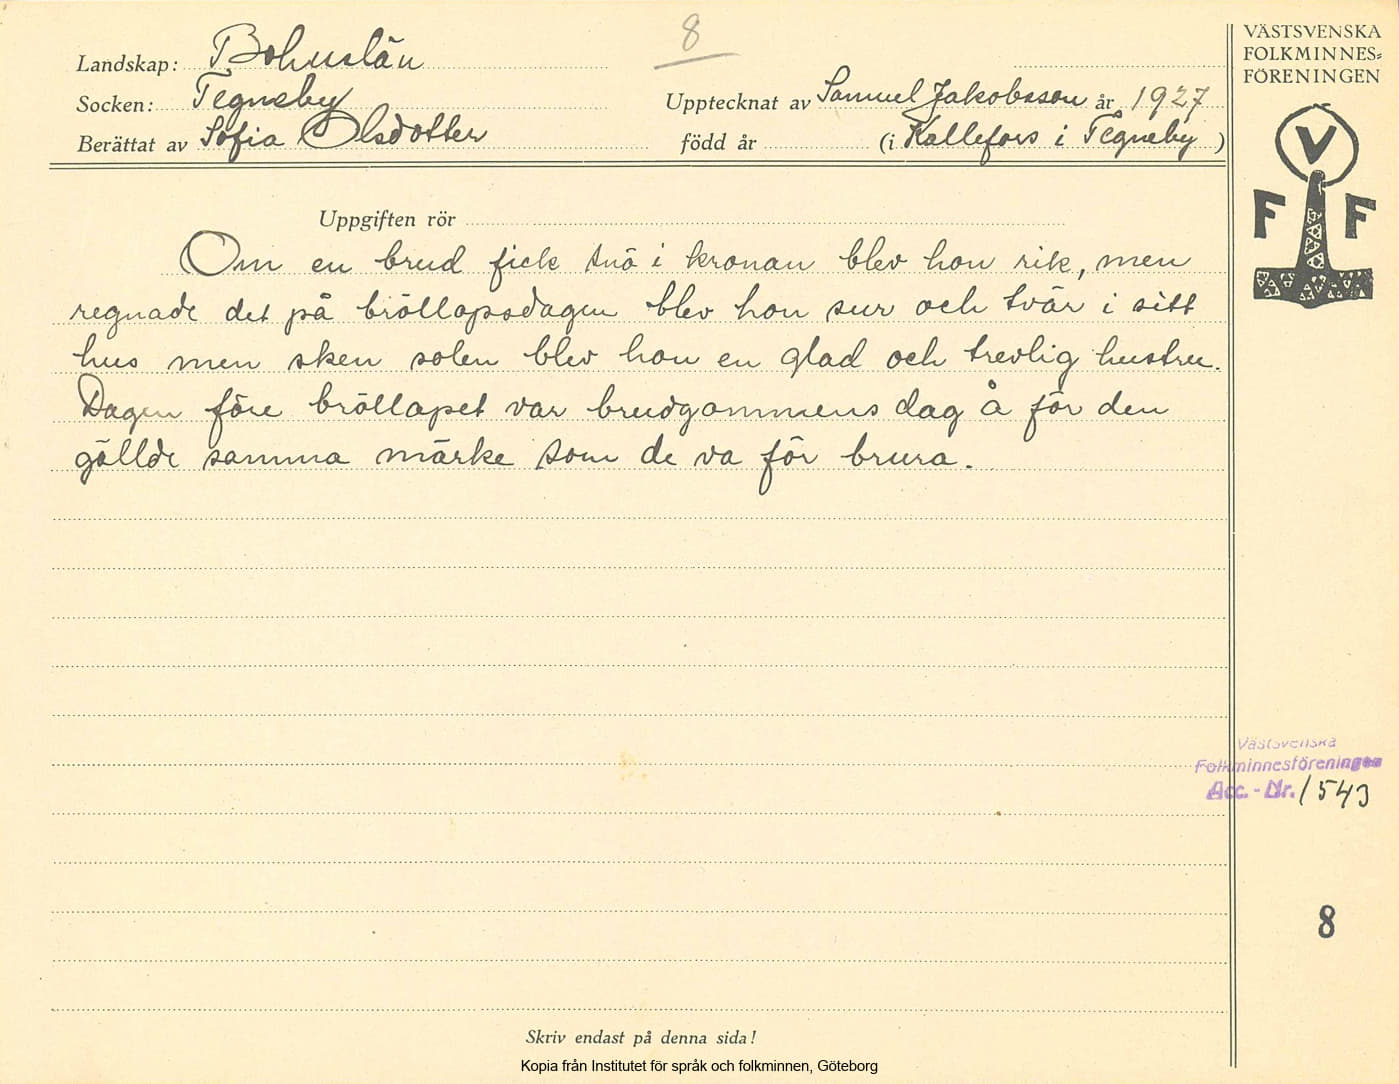 8
VÄSTSVENSKA
FOLKMINNES=
FÖRENINGEN
Landskap: Bohuslän
Socken: Tegneby
Upptecknat av Samuel Jakobsson år 1927
Berättat av Sofia Olsdotter född år (i Kallefors i Tegneby)
V
F F
Uppgiften rör
Om en brud fick snö i kronan blev hon rik, men
regnade det på bröllopsdagen blev hon sur och tvär i sitt
hus men sken solen blev hon en glad och trevlig hustru.
Dagen före bröllopet var brudgommens dag å för den
gällde samma märke som de va för brura.
Västsvenska
Folkminnesföreningen
Acc. - Nr. 1543
8
Skriv endast på denna sida!
Kopia från Institutet för språk och folkminnen, Göteborg